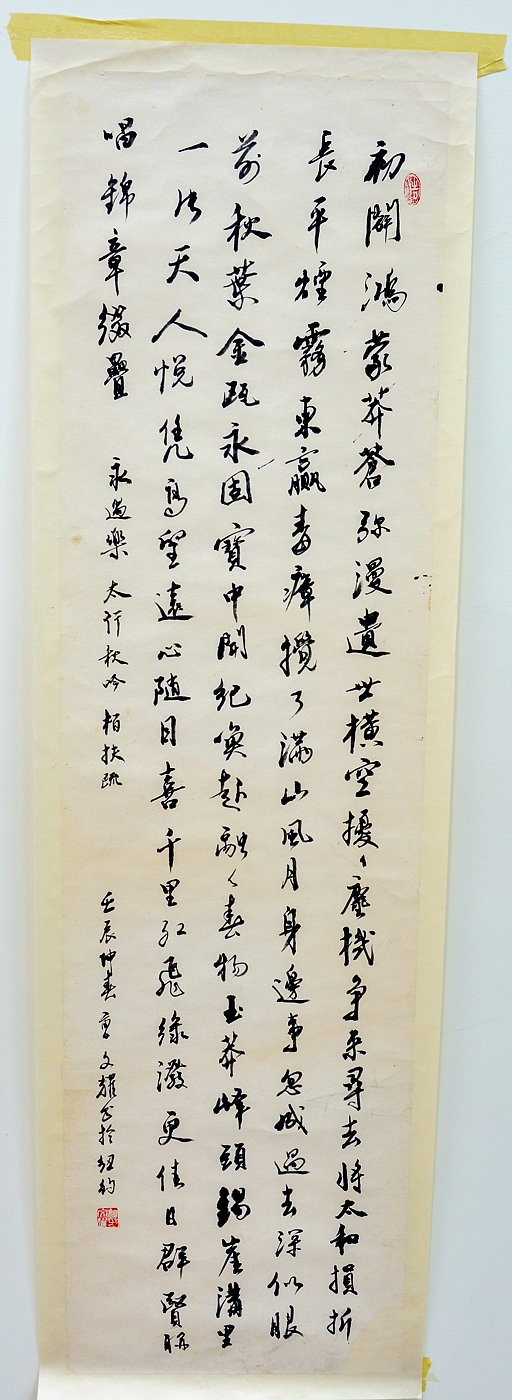 初開鴻蒙莽蒼弥漫遺世橫空擾擾塵機爭來尋去將太和損折
長平煙霧東嬴毒瘴攪了滿山風月身邊事忽威過去深似眼
前秋葉金甌永固寶中開紀喚起融融春物玉莽峰頭錫崖溝里
一片天人悅凭高望遠心隨目喜千里紅飛綠潑更佳日群賢聯
唱錦章綴疊
永遇樂 太行秋吟 柏扶疏
壬辰仲春 文耀書於紐約